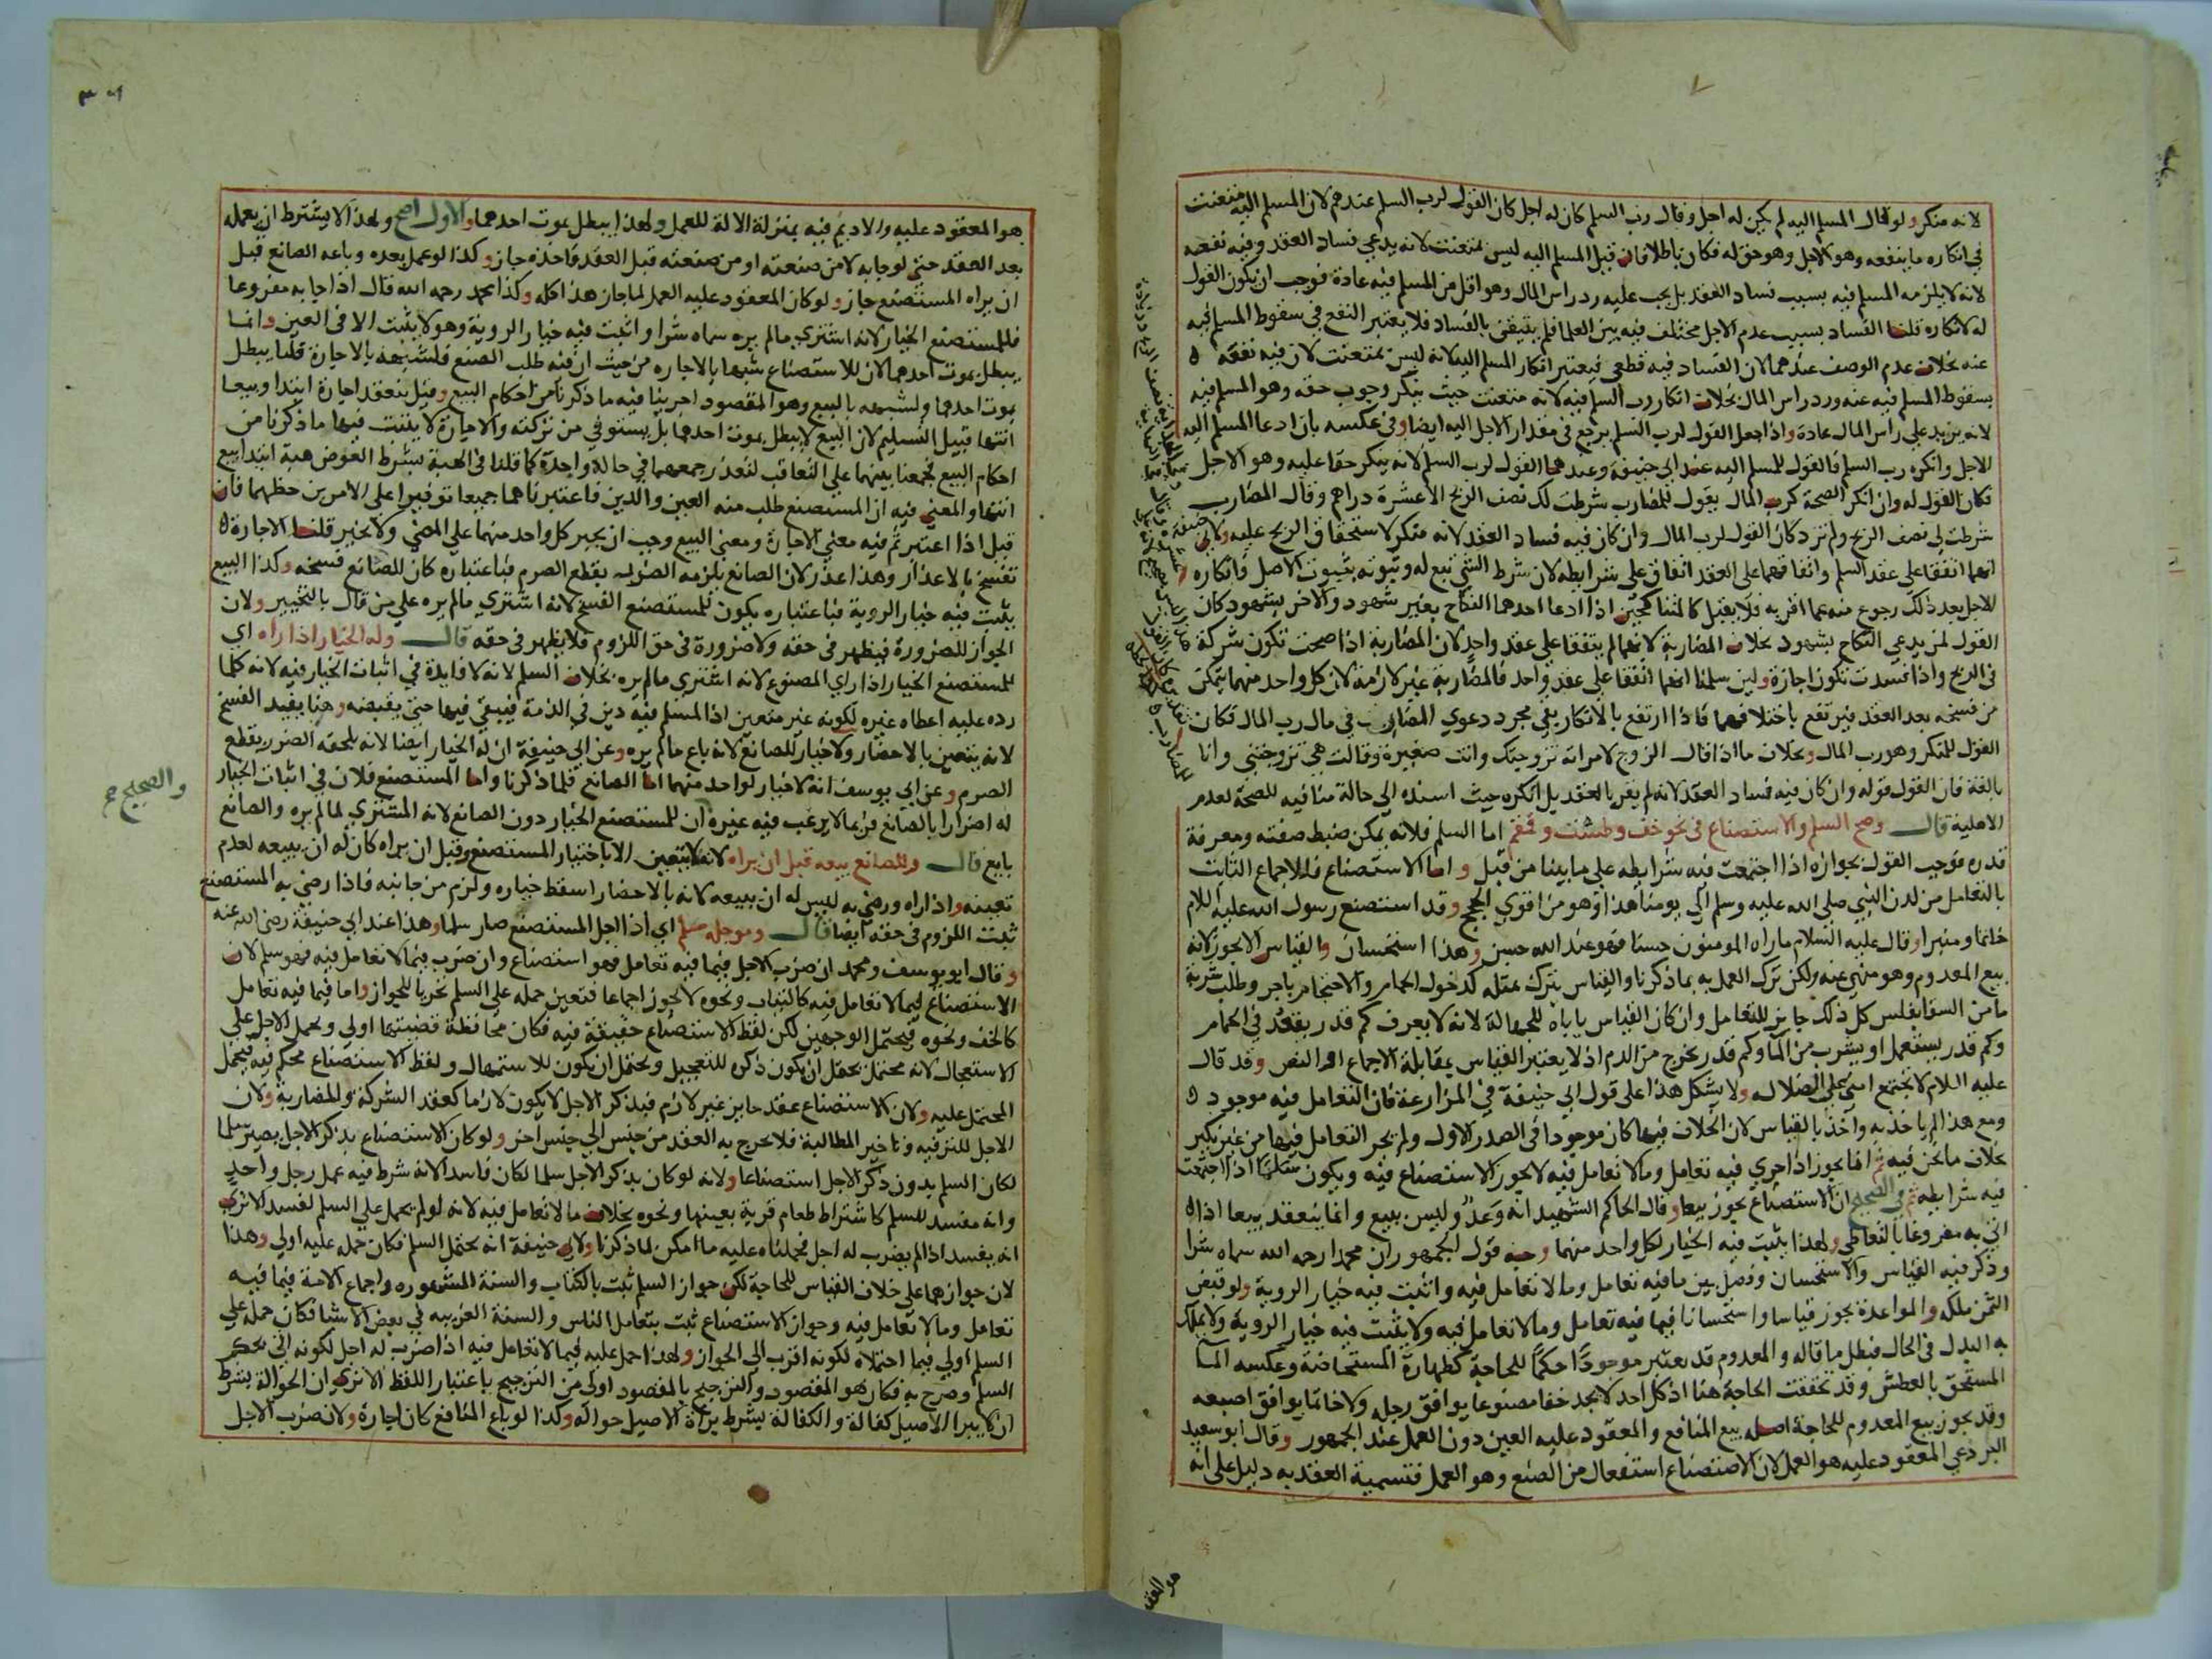 لانه منكر ولو قال المسلم اليه لم يكن له اجل وقال رب السلم كان له اجل كان القول لرب السلم عندهم لان المسلم اليه متعنت
في انكاره ما ينفعه وهو الاجل وهو حق له فكان باطلا فان قيل المسلم اليه ليس بمتعنت لانه يدعي فساد العقد وفيه نفعه
لانه لا يلزمه المسلم فيه بسبب فساد العقد بل يجب عليه رد راس المال وهو اقل من المسلم فيه عادة فوجب ان يكون القول
له لانكاره قلنا الفساد بسبب عدم الاجل مختلف فيه بين العلما فلم يتيقن بالفساد فلا يعتبر النفع في سقوط المسلم فيه
عنه بخلاف عدم الوصف عندهما لان الفساد فيه قطعي فيعتبر انكار المسلم اليه لانه ليس بمتعنت لان فيه نفعه
بسقوط المسلم فيه عنه ورد راس المال بخلاف انكار رب السلم فيه لانه متعنت حيث ينكر وجوب حقه وهو المسلم فيه
لانه يزيد على راس المال عادة واذا جعل القول لرب السلم يرجع في مقدار الاجل اليه ايضا وفي عكسه بان ادعا المسلم اليه
الاجل وانكره رب السلم فالقول للمسلم اليه عند ابي حنيفة وعندهما القول لرب السلم لانه ينكر حقا عليه وهو الاجل
فكان القول له وان انكر الصحة كرب المال يقول للمضارب شرطت لك نصف الربح الا عشرة دراهم وقال المضارب
شرطت لي نصف الربح ولم تزد كان القول لرب المال وان كان فيه فساد العقد لانه منكر لاستحقاق الربح عليه ولابي حنيفة
انهما اتفقا على عقد السلم واتفاقهما على العقد اتفاق على شرايطه لان شرط الشي تبع له وثبوته بثبوت الاصل فانكاره
الاجل بعد ذلك رجوع منه عما اقر به فلا يقبل كالمتناكحين اذا ادعا احدهما النكاح بغير شهود والاخر بشهود كان
القول لمن يدعي النكاح بشهود بخلاف المضاربة لانهما لم يتفقا على عقد واحد لان المضاربة اذا صحت تكون شركة
في الربح واذا فسدت تكون اجارة ولين سلمنا انهما اتفقا على عقد واحد فالمضاربة غير لازمة لان كل واحد منهما يتمكن
من فسخه بعد العقد فيرتفع باختلافهما فاذا ارتفع بالانكار بقي مجرد دعوي المضارب في مال رب المال فكان
القول للمنكر وهو رب المال وبخلاف ما اذا قال الزوج لامراته تزوجتك وانت صغيرة وقالت هي تزوجتني وانا
بالغة فان القول قوله وان كان فيه فساد العقد لانه لم يقر بالعقد بل انكره حيث اسنده الي حالة منافيه للصحة لعدم
الاهلية قال وصح السلم والاستصناع في نحو خف وطشت وقمقم اما السلم فلانه يمكن ضبط صفته ومعرفة
قدره فوجب القول بجوازه اذا اجتمعت فيه شرايطه على ما بينا من قبل واما الاستصناع فللاجماع الثابت
بالتعامل من لدن النبي صلى الله عليه وسلم الي يومنا هذا وهو من اقوي الحجج وقد استصنع رسول الله عليه السلام
خاتما ومنبرا وقال عليه السلام ما راه المومنون حسنا فهو عند الله حسن وهذا استحسان والقياس ان لا يجوز لانه
بيع المعدوم وهو منهي عنه ولكن ترك العمل به بما ذكرنا والقياس يترك بمثله كدخول الحمام والاحتجام باجر وطلب شربة
ما من السقا بفلس كل ذلك جايز للتعامل وان كان القياس ياباه للجهالة لانه لا يعرف كم قدر يقعد في الحمام
وكم قدر يستعمل او يشرب من الما وكم قدر يخرج من الدم اذ لا يعتبر القياس بمقابلة الاجماع او النص وقد قال
عليه السلام لا تجتمع امتي على الضلال ولا يشكل هذا على قول ابي حنيفة في المزارعة فان التعامل فيه موجود
ومع هذا لم ياخذ به واخذ بالقياس لان الخلاف فيها كان موجودا في الصدر الاول ولم يجر التعامل فيها من غير نكير
بخلاف ما نحن فيه ثم انما يجوز اذا جري فيه تعامل وما لا تعامل فيه لا يجوز الاستصناع فيه ويكون سلما اذا اجتمعت
فيه شرايطه ثم في الصحيح ان الاستصناع يجوز بيعا وقال الحاكم الشهيد انه وعد وليس ببيع وانما ينعقد بيعا اذا
اتي به مفروغا بالتعاطي ولهذا يثبت فيه الخيار لكل واحد منهما وجه قول الجمهور ان محمدا رحمه الله سماه شرا
وذكر فيه القياس والاستحسان وفصل بين ما فيه تعامل وما لا تعامل فيه واثبت فيه خيار الروية ولو قبض
الثمن ملكه والمواعدة يجوز قياسا واستحسانا فيما فيه تعامل وما لا تعامل فيه ولا يثبت فيه خيار الروية ولا يملك
به البدل في الحال فبطل ما قاله والمعدوم قد يعتبر موجودا حكما للحاجة كطهارة المستحاضة وعكسه الما
المستحق بالعطش وقد تحققت الحاجة هنا اذ كل احد لا يجد خفا مصنوعا يوافق رجله ولا خاتما يوافق اصبعه
وقد يجوز بيع المعدوم للحاجة اصله بيع المنافع والمعقود عليه العين دون العمل عند الجمهور وقال ابو سعيد
البردعي المعقود عليه هو العمل لان الاستصناع استفعال من الصنع وهو العمل فتسمية العقد به دليل على انه
هو المعقود عليه والاديم فيه بمنزلة الالة للعمل ولهذا يبطل بموت احدهما والاول اصح ولهذا لا يشترط ان يعمله
بعد العقد حتى لو جا به لا من صنعته او من صنعته قبل العقد فاخذه جاز وكذا لو عمل بعده وباعه الصانع قبل
ان يراه المستصنع جاز ولو كان المعقود عليه العمل لما جاز هذا كله وكذا محمد رحمه الله قال اذا جا به مفروغا
فللمستصنع الخيار لانه اشتري ما لم يره سماه شرا واثبت فيه خيار الروية وهو لا يثبت الا في العين وانما
يبطل بموت احدهما لان للاستصناع شبها بالاجاره من حيث ان فيه طلب الصنع فلشبهه بالاجارة قلنا يبطل
بموت احدهما ولشبهه بالبيع وهو المقصود اجرينا فيه ما ذكرنا من احكام البيع وقيل ينعقد اجارة ابتدا وبيعا
انتها قبيل التسليم لان البيع لا يبطل بموت احدهما بل يستوفي من تركته والاجارة لا يثبت فيها ما ذكرنا من
احكام البيع فجمعنا بينهما على التعاقب لتعذر جمعهما في حالة واحدة كما قلنا في الهبة بشرط العوض هبة ابتدا بيع
انتها والمعني فيه ان المستصنع طلب منه العين والدين فاعتبرناهما جميعا توفيرا على الامرين حظهما فان
قيل اذا اعتبرتم فيه معني الاجارة ومعني البيع وجب ان يجبر كل واحد منهما على المضي ولا يخير قلنا الاجارة
تفسخ بالاعذار وهذا عذر لان الصانع يلزمه الضرر بقطع الصرم فباعتباره كان للصانع فسخه وكذا البيع
يثبت فيه خيار الروية فباعتباره يكون للمستصنع الفسخ لانه اشتري ما لم يره على من قال بالتخيير ولان
الجواز للضرورة فيظهر في حقه ولا ضرورة في حق اللزوم فلا يظهر في حقه قال وله الخيار اذا راه اي
للمستصنع الخيار اذا راي المصنوع لانه اشتري ما لم يره بخلاف السلم لانه لا فايدة في اثبات الخيار فيه لانه كلما
رده عليه اعطاه غيره لكونه غير متعين اذ المسلم فيه دين في الذمة فيبقي فيها حتى يقبضه وهنا يفيد الفسخ
لانه يتعين بالاحضار ولا خيار للصانع لانه باع ما لم يره وعن ابي حنيفة ان له الخيار ايضا لانه يلحقه الضرر بقطع
الصرم وعن ابي يوسف انه لا خيار لواحد منهما اما الصانع فلما ذكرنا واما المستصنع فلان في اثبات الخيار
له اضرارا بالصانع فربما لا يرغب فيه غيره ان للمستصنع الخيار دون الصانع لانه المشتري لما لم يره والصانع
بايع قال وللصانع بيعه قبل ان يراه لانه لا يتعين الا باختيار المستصنع وقبل ان يراه كان له ان يبيعه لعدم
تعينه واذا راه ورضي به ليس له ان يبيعه لانه بالاحضار اسقط خياره ولزم من جانبه فاذا رضي به المستصنع
ثبت اللزوم في حقه ايضا قال وموجله سلم اي اذا اجل المستصنع صار سلما وهذا عند ابي حنيفة رضي الله عنه
وقال ابو يوسف ومحمد ان ضرب الاجل فيما فيه تعامل فهو استصناع وان ضرب فيما لا تعامل فيه فهو سلم لان
الاستصناع فيما لا تعامل فيه كالثياب ونحوه لا يجوز اجماعا فتعين حمله على السلم تحريا للجواز واما فيما فيه تعامل
كالخف ونحوه فيحتمل الوجهين لكن لفظ الاستصناع حقيقة فيه فكان محافظة قضيتها اولي ويحمل الاجل على
الاستعجال لانه محتمل يحتمل ان يكون ذكره للتعجيل ويحتمل ان يكون للاستمهال ولفظ الاستصناع محكم فيه فيحمل
المحتمل عليه ولان الاستصناع عقد جايز غير لازم فبذكر الاجل لا يكون لازما كعقد الشركة والمضاربة ولان
الاجل للترفيه وتاخير المطالبة فلا يخرج به العقد من جنس الي جنس اخر ولو كان الاستصناع بذكر الاجل يصير سلما
لكان السلم بدون ذكر الاجل استصناعا ولانه لو كان بذكر الاجل سلما لكان فاسدا لانه شرط فيه عمل رجل واحد
وانه مفسد للسلم كاشتراط طعام قرية بعينها ونحوه بخلاف ما لا تعامل فيه لانه لو لم يحمل على السلم لفسد الا تري
انه يفسد اذا لم يضرب له اجل فحملناه عليه ما امكن لما ذكرنا ولابي حنيفة انه يحتمل السلم فكان حمله عليه اولي وهذا
لان جوازهما على خلاف القياس للحاجة لكن جواز السلم ثبت بالكتاب والسنة المشهوره واجماع الامة فيما فيه
تعامل وما لا تعامل فيه وجواز الاستصناع ثبت بتعامل الناس والسنة الغريبه في بعض الاشيا فكان حمله على
السلم اولي فيما احتملاه لكونه اقرب الي الجواز ولهذا حمل عليه فيما لا تعامل فيه اذا ضرب له اجل لكونه اتي بحكم
السلم وصرح به فكان هو المقصود والترجيح بالمقصود اولي من الترجيح باعتبار اللفظ الا تري ان الحوالة بشرط
ان لا يبرا الاصيل كفالة والكفالة بشرط براة الاصيل حواله وكذا لو باع المنافع كان اجارة ولان ضرب الاجل
والصحيح صح